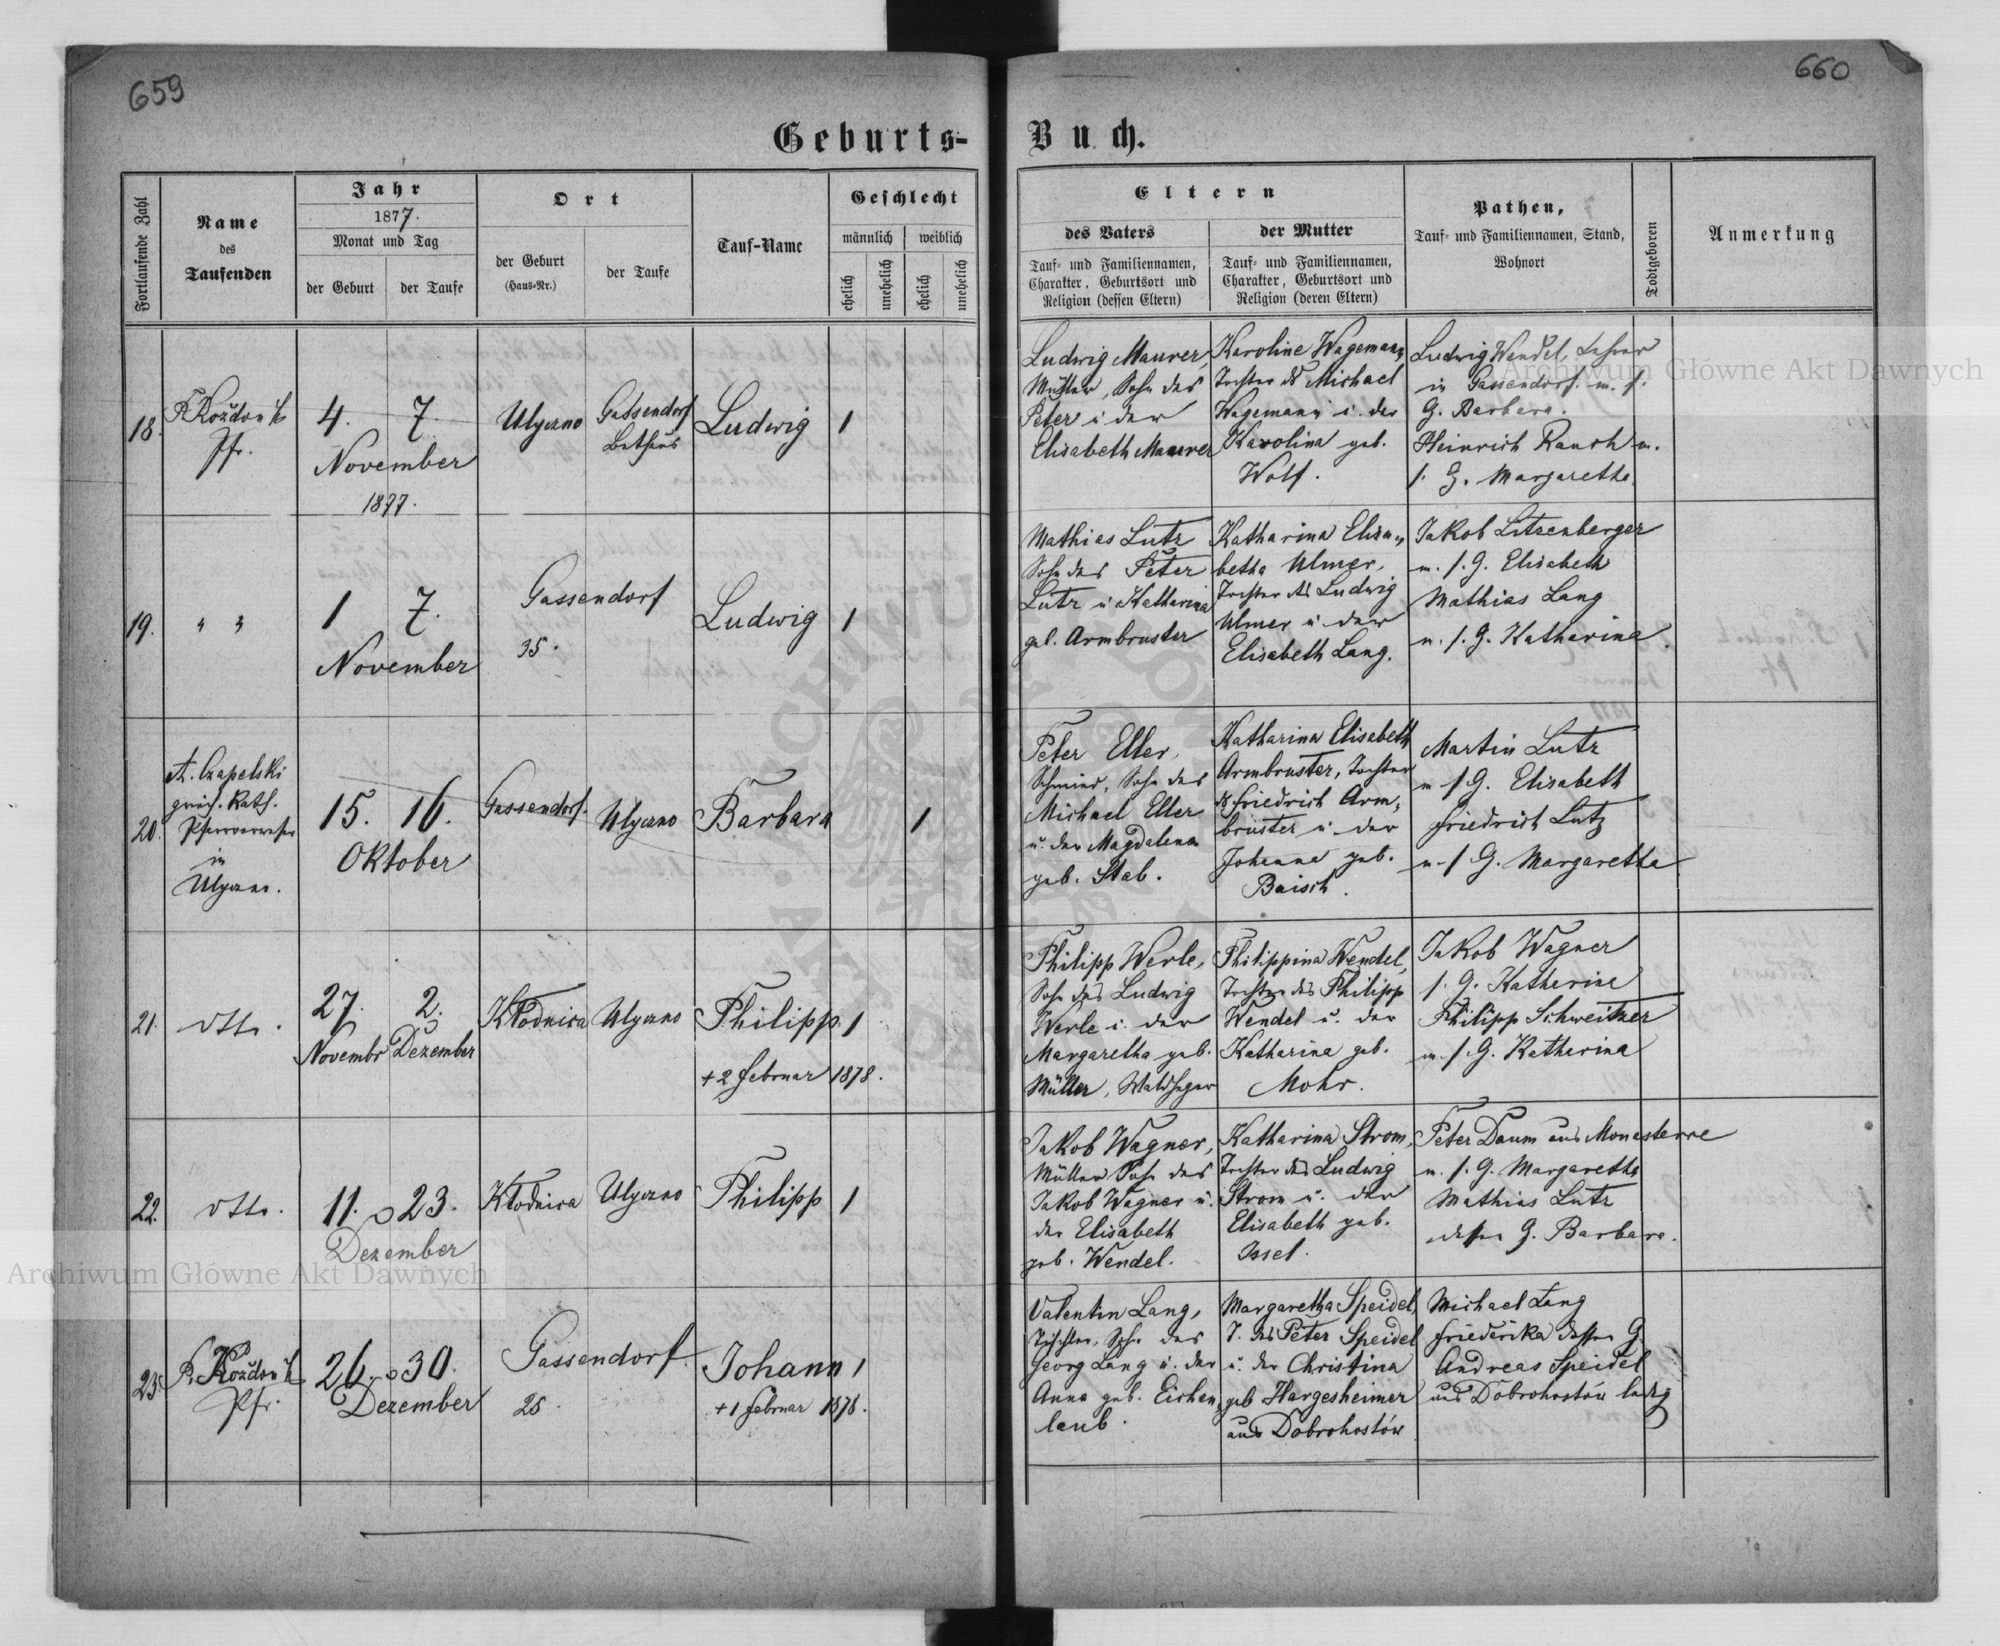 659
660
Geburts-
Buch.
Fortlaufende Zahl
Name
des
Taufenden
Jahr
1877.
Monat und Tag
der Geburt
der Taufe
Ort
der Geburt
(Haus-Nr.)
der Taufe
Tauf-Name
Geschlecht
männlich
weiblich
ehelich
unehelich
ehelich
unehelich
Eltern
des Vaters
Tauf- und Familiennamen,
Charakter, Geburtsort und
Religion (dessen Eltern)
der Mutter
Tauf- und Familiennamen,
Charakter, Geburtsort und
Religion (deren Eltern)
Pathen,
Tauf- und Familiennamen, Stand,
Wohnort
Todtgeboren
Anmerkung
18.
Pfr.
4. 7.
November
1877.
Ulyczno
Gassendorf
Bethaus
Ludwig
1
Ludwig Maurer,
Müller, Sohn des
Peter u. der
Elisabeth Maurer
Karoline Wagemann,
Tochter ds Michael
Wagemann u. der
Karolina geb.
Wolf.
Ludwig Wendel, Lehrer
in Gassendorf. m. s.
G. Barbara.
Heinrich Rauch m.
s. G. Margaretha
19.
" "
1 7.
November
Gassendorf
35.
Ludwig
1
Mathias Lutz
Sohn des Peter
Lutz u Katharina
geb. Armbruster
Katharina Elisa-
betha Ulmer,
Tochter ds Ludwig
Ulmer u. der
Elisabeth Lang.
Jakob Litzenberger
m. s. G. Elisabeth
Mathias Lang
m. s. G. Katharina
20.
A. Czapelski
griech. kath.
Pfarrverweser
in
Ulyczno.
15. 16.
Oktober
Gassendorf.
Ulyczno
Barbara
1
Peter Eller,
Schmied, Sohn des
Michael Eller
u. der Magdalena
geb. Stab.
Katharina Elisabeth
Armbruster, Tochter
ds Friedrich Arm-
bruster u. der
Johanna geb.
Baisch.
Martin Lutz
m s G. Elisabeth
Friedrich Lutz
m s G. Margaretha
21.
dtto.
27. 2.
Novembr Dezember
Kłodnica
Ulyczno
Philipp
1
+ 2 Februar 1878.
Philipp Werle,
Sohn des Ludwig
Werle u. der
Margaretha geb.
Müller, Waldheger
Philippina Wendel,
Tochter des Philipp
Wendel u. der
Katharina geb.
Mohr.
Jakob Wagner
s. G. Katharine
Philipp Schweitzer
m. s. G. Katharina
22.
dtto.
11. 23.
Dezember
Kłodnica
Ulyczno
Philipp
1
Jakob Wagner,
Müller Sohn des
Jakob Wagner u.
der Elisabeth
geb. Wendel.
Katharina Strom,
Tochter des Ludwig
Strom u. der
Elisabeth geb.
Issel.
Peter Daum aus Monasterce
m. s. G. Margaretha
Mathias Lutz
dessen G. Barbara.
23.
Pfr.
26. 30.
Dezember
Gassendorf.
25.
Johann
1
+ 1 Februar 1878.
Valentin Lang,
Tischler, Sohn des
Georg Lang u. der
Anna geb. Eichen-
laub.
Margaretha Speidel,
T. des Peter Speidel
u. der Christina
geb Hargesheimer
aus Dobrohostów
Michael Lang
Friederika dessen G.
Andreas Speidel
aus Dobrohostów ledig
Archiwum Główne Akt Dawnych
Archiwum Główne Akt Dawnych